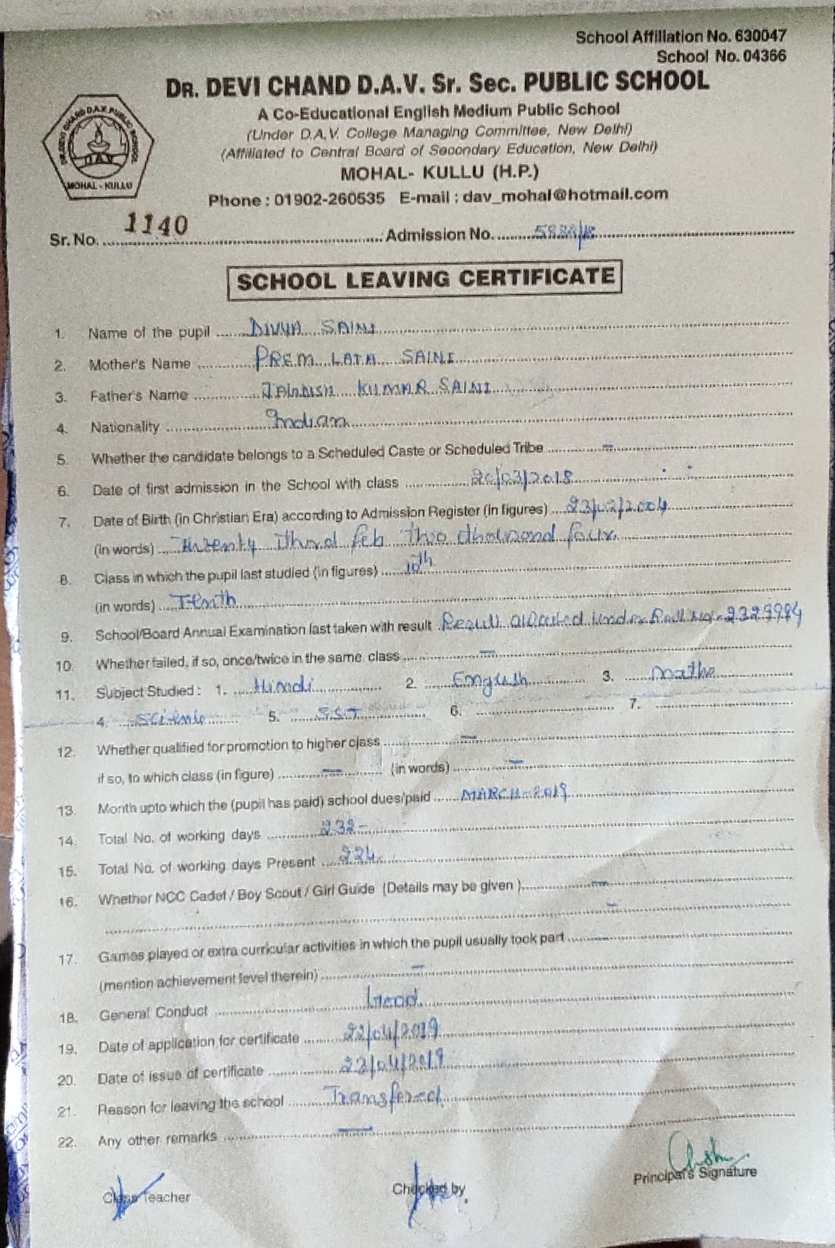 School Affiliation No. 630047
School No. 04366
DR. DEVI CHAND D.A.V. Sr. Sec. PUBLIC SCHOOL
A Co-Educational English Medium Public School
(Under D.A.V. College Managing Committee, New Delhi)
(Affiliated to Central Board of Secondary Education, New Delhi)
MOHAL- KULLU (H.P.)
Phone : 01902-260535 E-mail : dav_mohal@hotmail.com
DR. DEVI CHAND D.A.V. PUBLIC SCHOOL
DAV
MOHAL - KULLU
Sr. No. 1140 Admission No.
SCHOOL LEAVING CERTIFICATE
1. Name of the pupil DIVYA SAINI
2. Mother's Name PREM LATA SAINI
3. Father's Name KUMAR SAINI
4. Nationality Indian
5. Whether the candidate belongs to a Scheduled Caste or Scheduled Tribe —
6. Date of first admission in the School with class 20/03/2018
7. Date of Birth (in Christian Era) according to Admission Register (in figures) 23/02/2004
(in words) Twenty third feb two thousand four
8. Class in which the pupil last studied (in figures) 10th
(in words) Tenth
9. School/Board Annual Examination last taken with result Result awaited under Roll No. 2329984
10. Whether failed, if so, once/twice in the same class —
11. Subject Studied : 1. Hindi 2. English 3. Maths
4. Science 5. SST 6. 7.
12. Whether qualified for promotion to higher class —
if so, to which class (in figure) — (in words) —
13. Month upto which the (pupil has paid) school dues/paid MARCH-2019
14. Total No. of working days 232-
15. Total No. of working days Present
16. Whether NCC Cadet / Boy Scout / Girl Guide (Details may be given ) —
—
17. Games played or extra curricular activities in which the pupil usually took part
(mention achievement level therein) —
18. General Conduct Good
19. Date of application for certificate 22/04/2019
20. Date of issue of certificate 22/04/2019
21. Reason for leaving the school Transfered
22. Any other remarks —
Class Teacher Checked by Principal's Signature